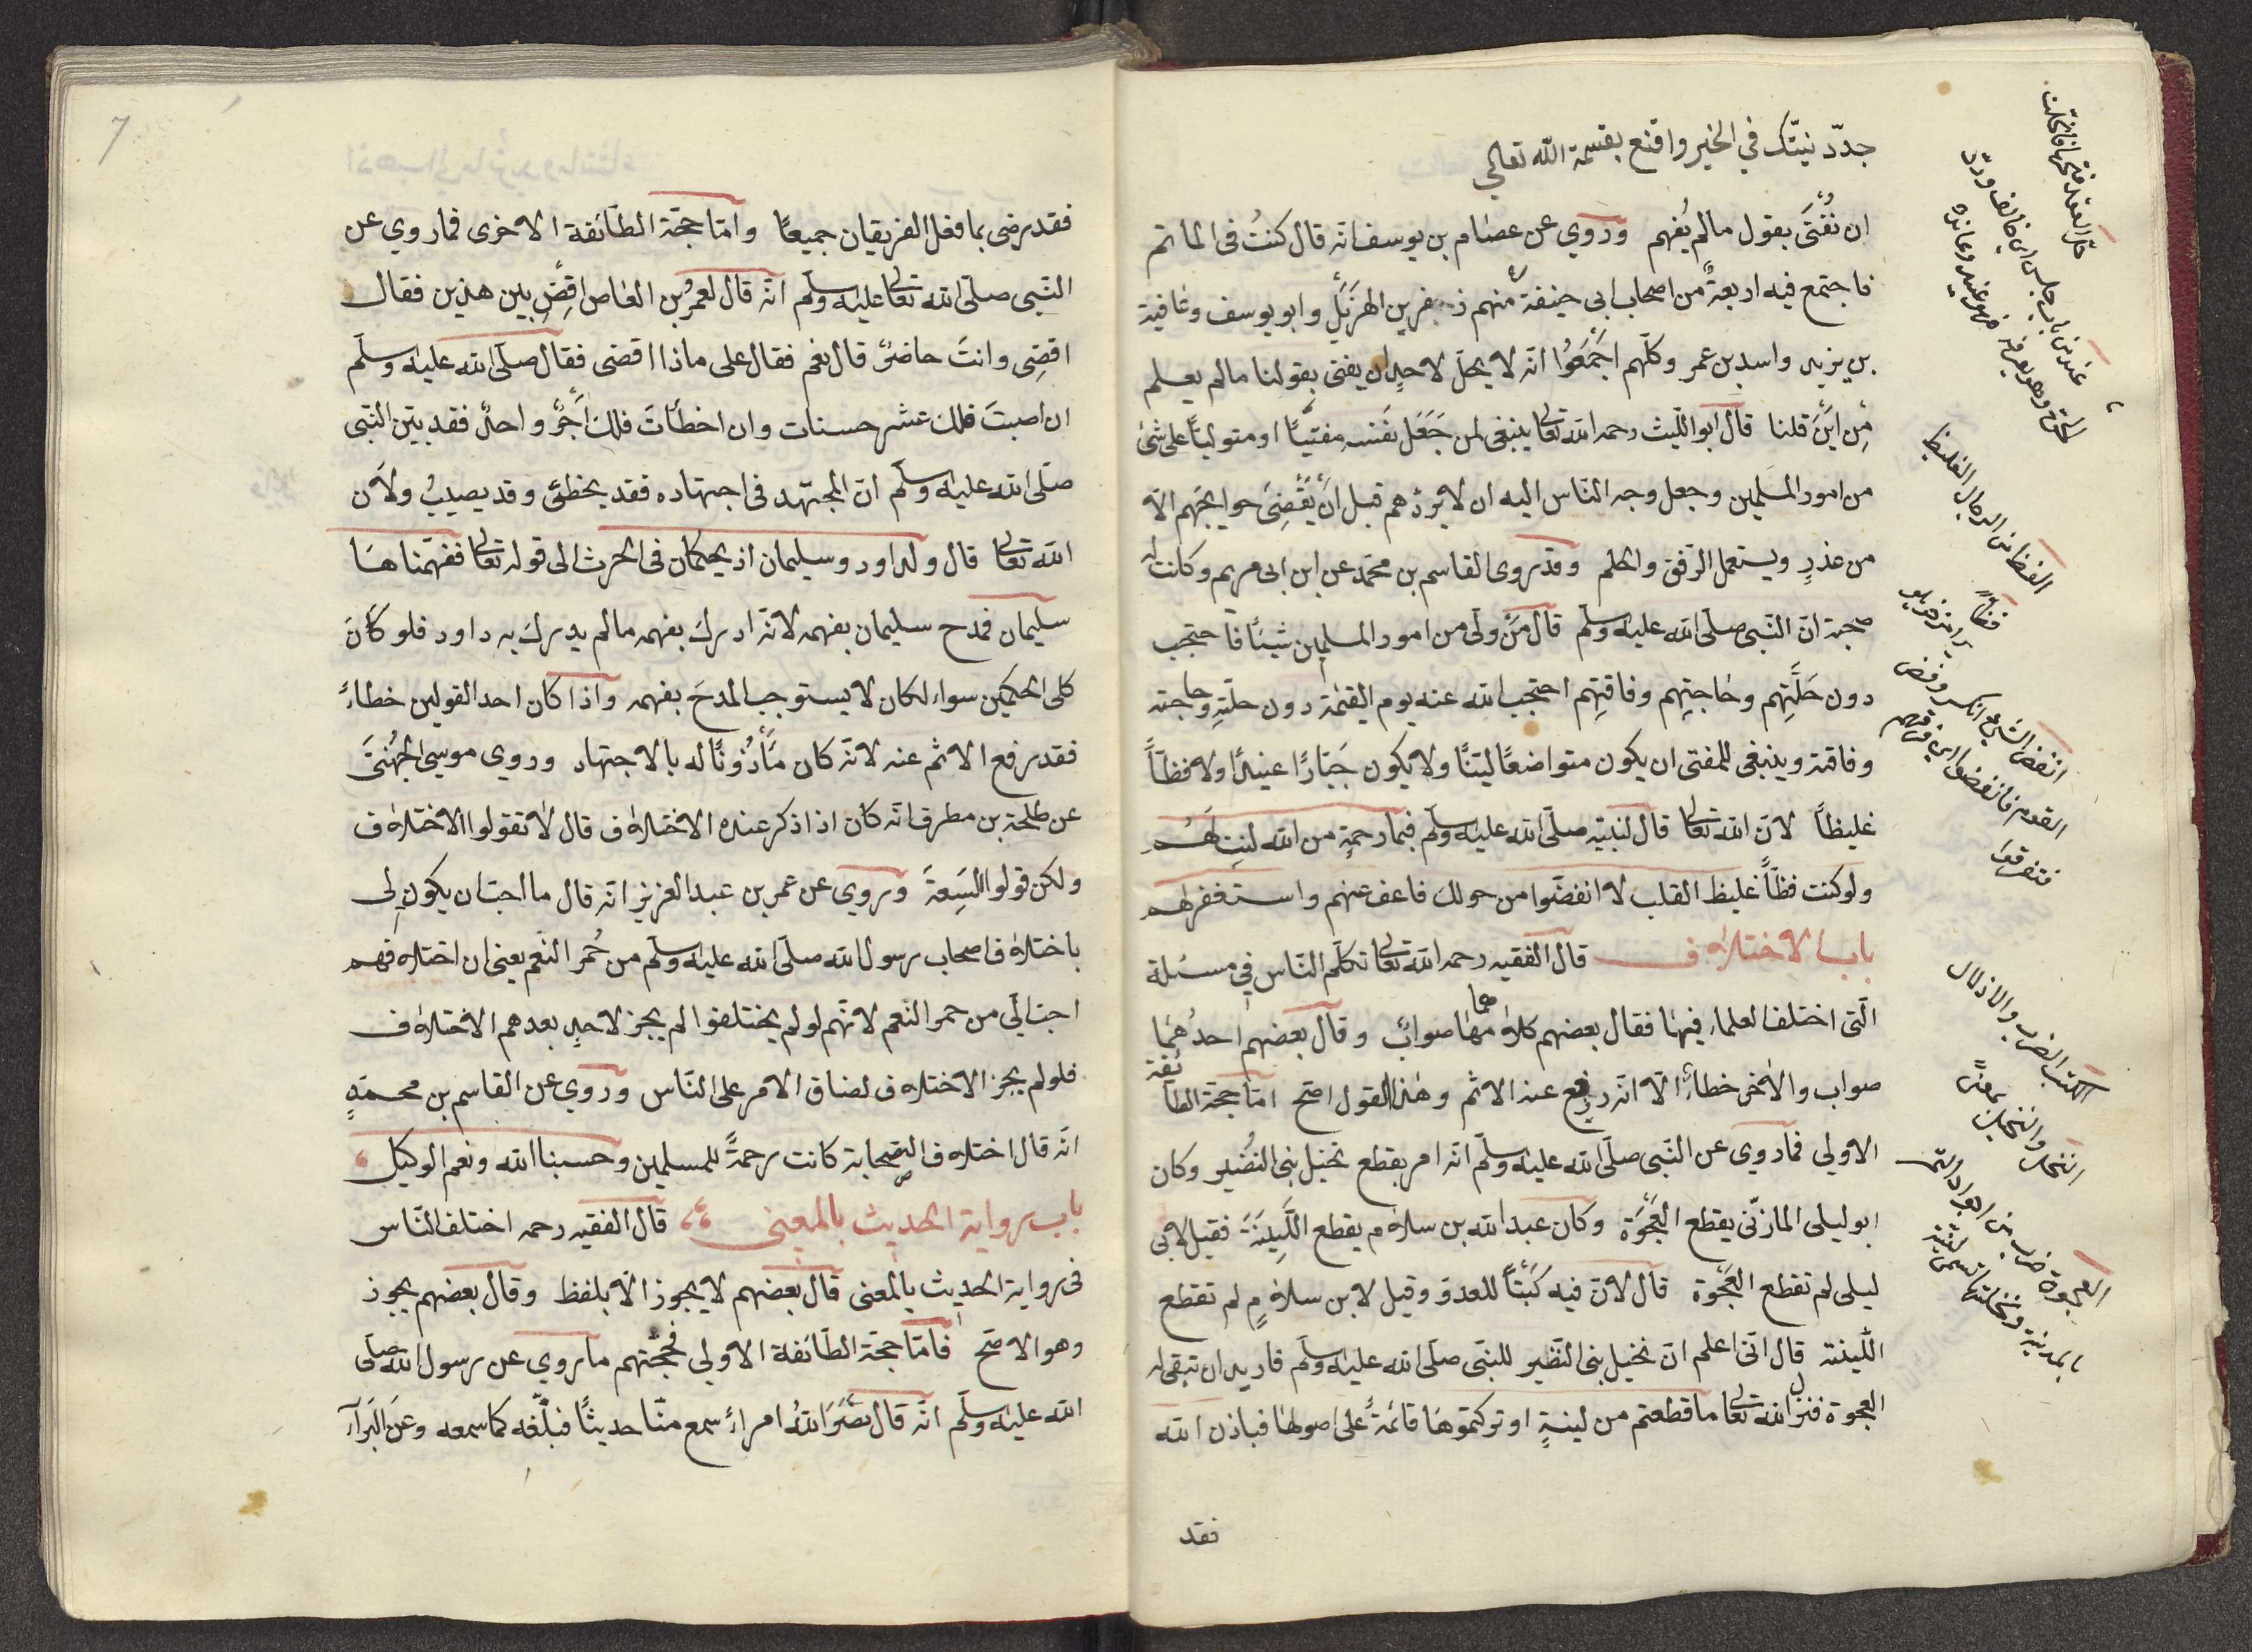 جدّد نيّتك في الخير واقنع بقسمة الله تعالي
ان نُفْتَى بقول مالم يُفهم وروي عن عصام بن يوسف انّه قال كنتُ فى الماتم
فاجتمع فيه اربعةٌ من اصحاب ابى حنيفة منهم زفر بن الهزَيْلِ وابو يوسف وعافية
بن يزيد واسد بن عمر وكلّهم اجْمَعُوا انّه لا يحلّ لاحدٍ ان يفتى بقولنا مالم يعلم
مِنْ ايْنَ قلنا قال ابو اللّيث رحمه الله تعالى ينبغى لمن جَعَل نَفسه مفتيًا او متوليًا على شئ
من امور المسلمين وجعل وجه النّاس اليه ان لا يردّهم قبل انْ يَقْضِىَ حوايجَهم الّا
من عذرٍ ويستعمل الرّفق والحلم وقد روى القاسم بن محمّد عن ابن ابى مريم وكانت له
صحبة انّ النّبى صلّى الله عليه وسلّم قال مَنْ ولّى من امور المسلمين شيئًا فاحتجب
دون حَلّتِهم وحاجتِهم وفاقتِهم احتجب الله عنه يوم القيمة دون حلّتِه وحاجته
وفاقته وينبغى للمفتى ان يكون متواضعًا ليّنًا ولا يكون جَبّارًا عنيدًا ولا فظّاً
غليظاً لانّ الله تعالى قال لنبيّه صلّى الله عليه وسلّم فبما رحمةٍ من الله لنت لهُم
ولو كنت فظّاً غليظ القلب لا انفضّوا من حولك فاعف عنهم واستغفر لهم
باب الاختلاف قال الفقيه رحمه الله تعالى تكلّم النّاس في مسئلة
الّتى اختلف العلماء فيها فقال بعضهم كلاهما صوابٌ وقال بعضهم احدُهما
صواب والاخر خطاءٌ الّا انّه رفع عنه الاثم وهذا القول اصحّ امّا حجّة الطائفة
الاولى فما روي عن النّبى صلّى الله عليه وسلّم انّه امر بقطع نخيل بنى النضُير وكان
ابو ليلى المازنّى يقطع العَجْوَة وكان عبد الله بن سلام يقطع اللَّيِنَةَ فقيل لابى
ليلى لم تقطع العَجْوة قال لانّ فيه كَبْتًا للعدوّ وقيل لابن سلامٍ لم تقطع
اللّينة قال انّى اعلم انّ نخيل بنى النّظير للنبّى صلّى الله عليه وسلّم فاريد ان تبقى له
العجوة فنزل الله تعالى ما قطعتم من لينةٍ او تركتموها قائمةً على اصولها فباذن الله
فقد
الفظ من الرجال الغليظ
انفضّ الشئ انكسر وفضّ
القوم فانفضوا اى فرّقهم
فتفرّقوا
الكبت الضرب والاذلال
النخل والنخيل بمعنًى
العجوة ضرب من اجواد التمر
بالمدينة ونخلتها تسمى لينة
7
فقد رضى بما فعل الفريقان جميعًا وامّا حجّة الطّائفة الاخرى فما روي عن
النّبى صلّى الله تعالى عليه وسلّم انّه قال لعمرُ بن العاص اقِضِ بين هذين فقال
اقضِى وانتَ حاضرٌ قال نعم فقال على ماذا اقضى فقال صلّى الله عليه وسلّم
ان اصبتَ فلك عشر حسنات وان اخطأتَ فلك اَجْرٌ واحدٌ فقد بيّن النّبى
صلّى الله عليه وسلّم انّ المجتهد فى اجتهاده فقد يخطئ وقد يصيبُ ولانّ
الله تعالى قال ولداود وسليمان اذ يحكمان فى الحرث الى قوله تعالى ففهّمناها
سليمان فمدح سليمان بفهمه لانّه ادرك بفهمه مالم يدرك به داود فلو كان
كلى الحكمين سواء لكان لا يستوجب المدحَ بفهمه واذا كان احد القولين خطاءً
فقد رفع الاثم عنه لانّه كان مَأذُونًا له بالاجتهاد وروي موسى الجُهَنىّ
عن طلحة بن مطرف انّه كان اذا ذكر عنده الاختلاف قال لا تقولوا الاختلاف
ولكن قولوا السَّعةَ وروي عن عمر بن عبد العزيز انّه قال ما احبّ ان يكون لِى
باختلاف اصحاب رسول الله صلّى الله عليه وسلّم من حُمر النّعم يعنى ان اختلافهم
احبّ الَىّ من حمر النّعم لانّهم لو لم يختلفوا لم يجز لاحدٍ بعدهم الاختلاف
فلو لم يجز الاختلاف لضاق الامر على النّاس وروي عن القاسم بن محمّدٍ
انّه قال اختلاف الصّحابة كانت رحمةً للمسلمين وحسبنا الله ونعم الوكيل
باب رواية الحديث بالمعنى قال الفقيه رحمه اختلف النّاس
فى رواية الحديث بالمعنى قال بعضهم لا يجوز الّا بلفظ وقال بعضهم يجوز
وهو الاصّح فامّا حجّة الطّائفة الاولى فحجّتهم ما روي عن رسول الله صلّى
الله عليه وسلّم انّه قال نضّرَ اللهُ امراءً سمع منّا حديثًا فبلّغه كما سمعه وعَن البَراء